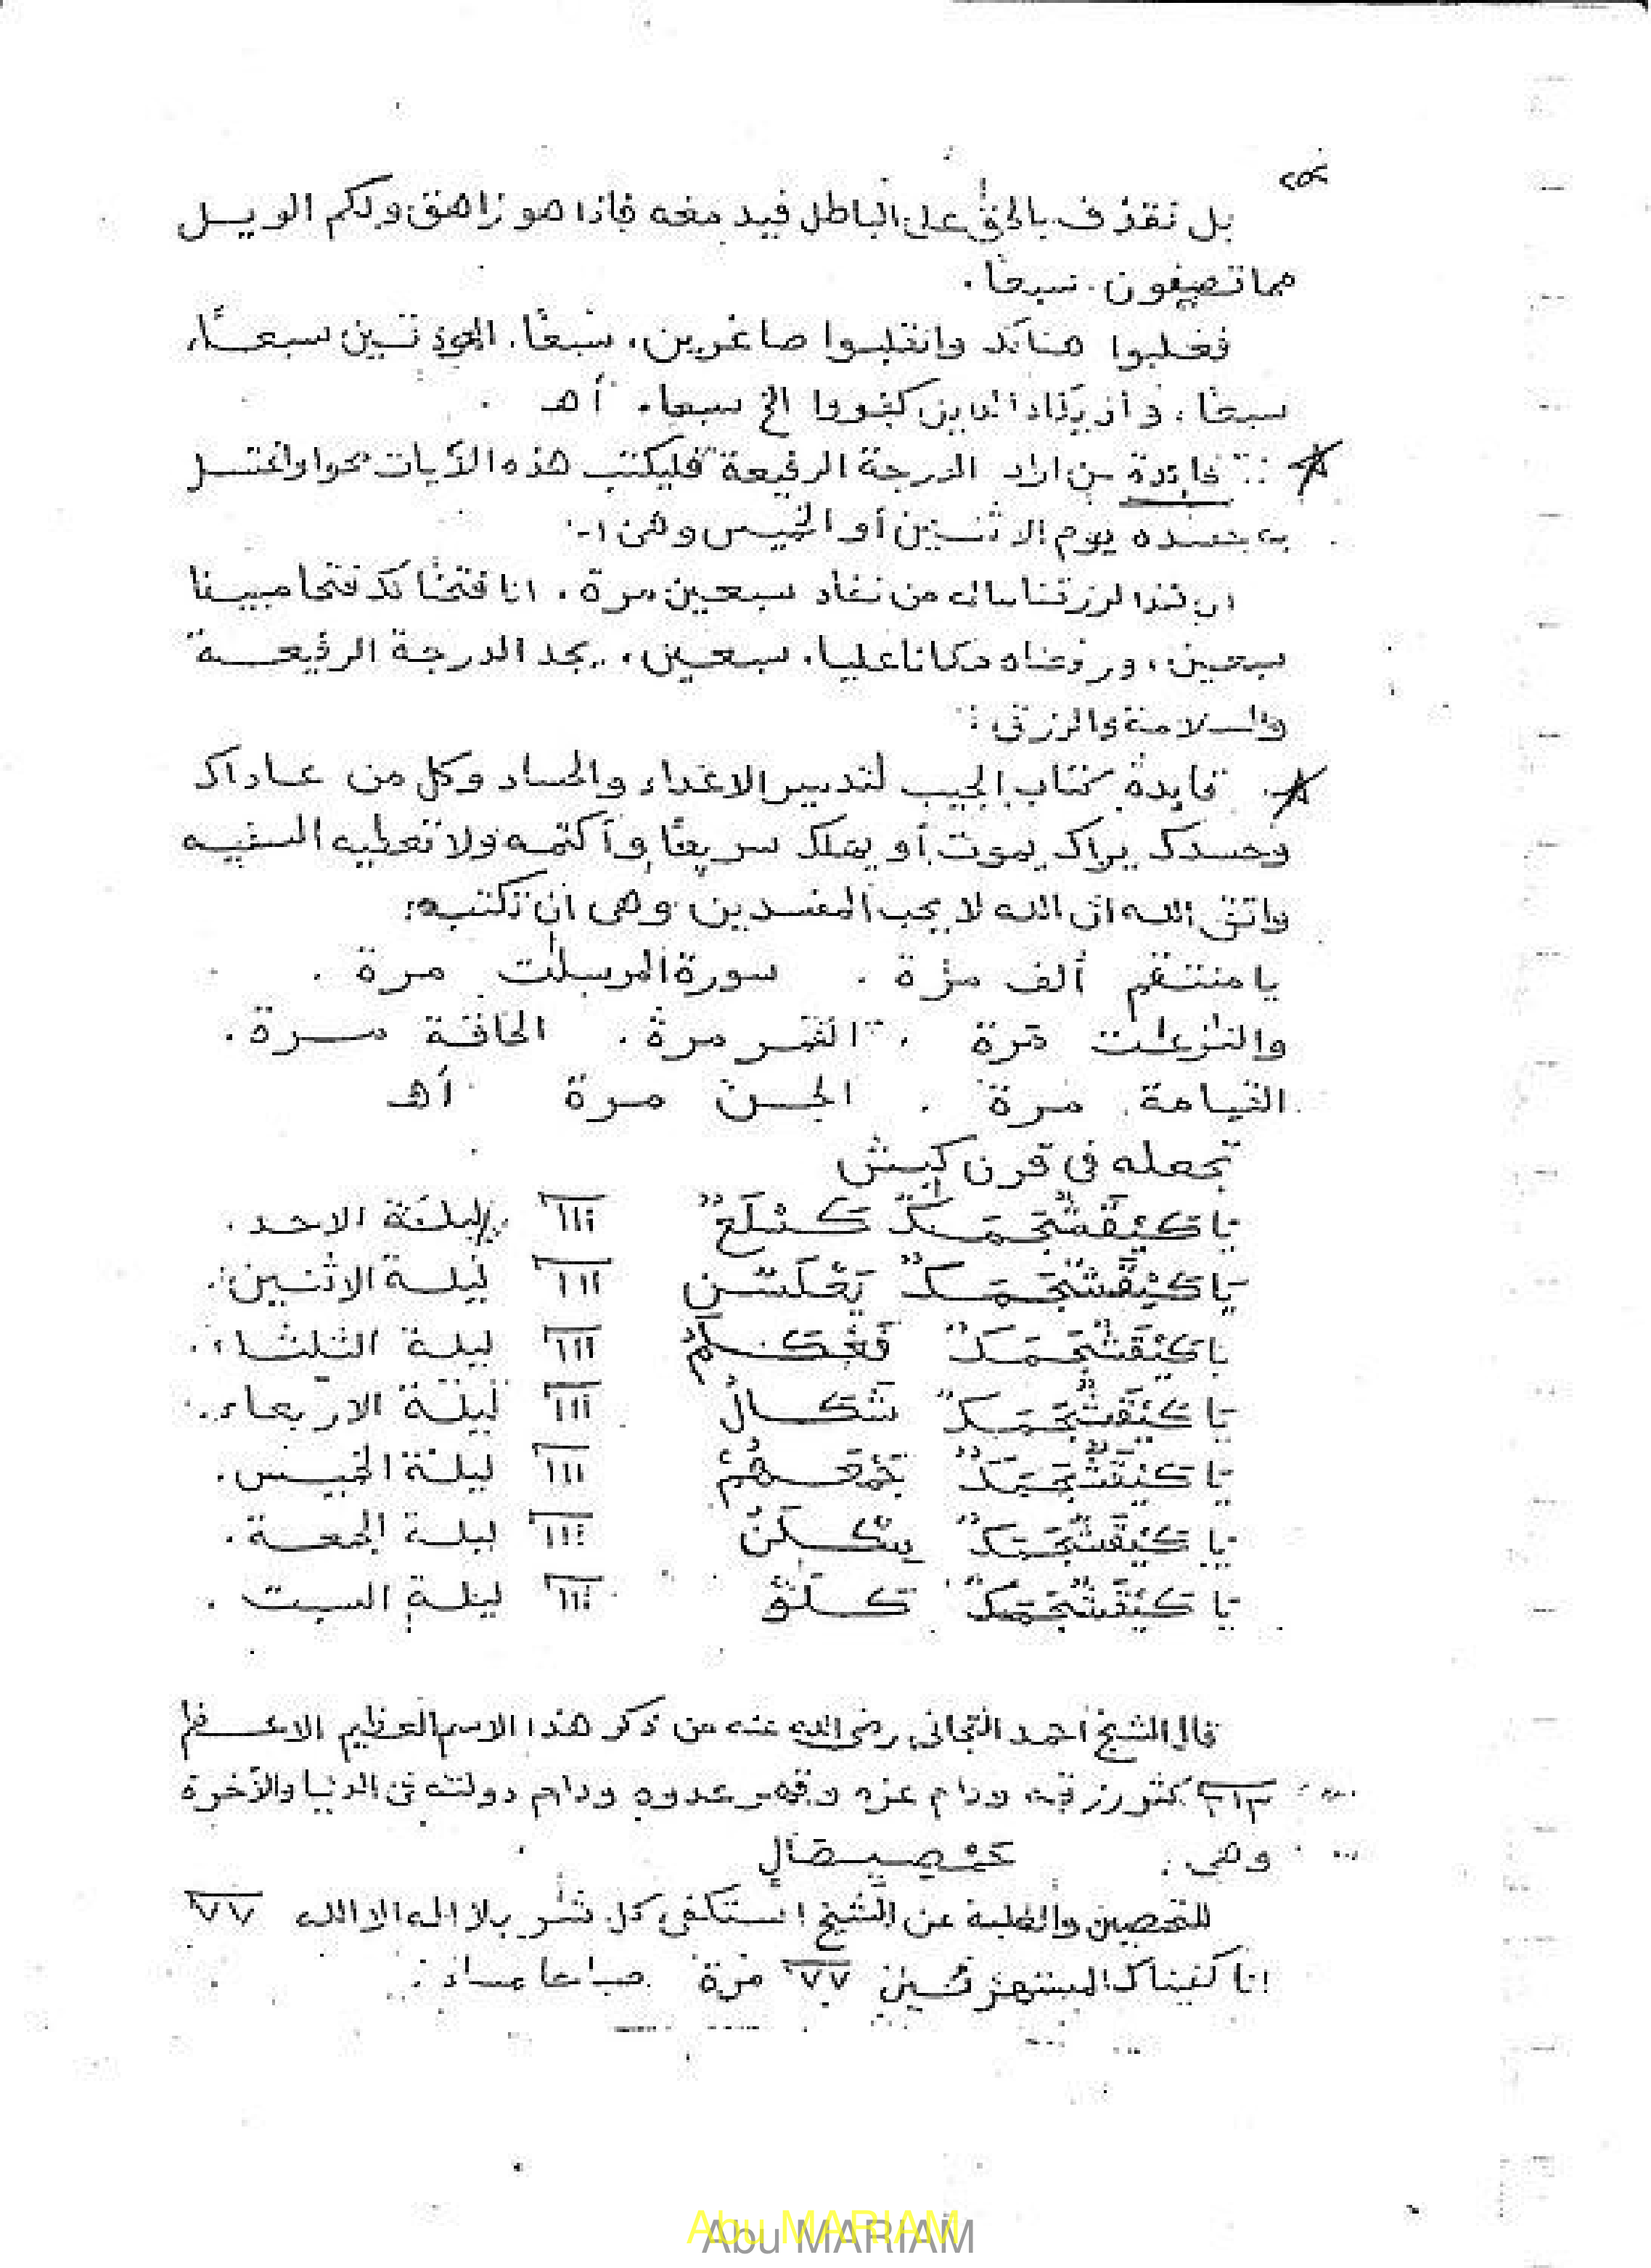 بل نقذف بالحق على الباطل فيدمغه فاذا هو زاهق ولكم الويل
مما تصفون . سبعا .
فغلبوا هنالك وانقلبوا صاغرين، سبعا . المعوذتين سبعا،
سبعا، وان يكاد الذين كفروا الخ سبعا . أهـ
فايدة من اراد الدرجة الرفيعة فليكتب هذه الآيات محوا واغتسل
به جسده يوم الاثنين أو الخميس وهى :-
ان هذا لرزقنا ماله من نفاد سبعين مرة . انا فتحنا لك فتحا مبينا
سبعين، ورفعناه مكانا عليا . سبعين، يجد الدرجة الرفيعة
والسلامة والرزق :
فايدة كتاب الجيب لتدمير الاعداء والحساد وكل من عاداك
وحسدك يراك يموت أو يهلك سريعا وأكتمه ولا تعطيه السفيه
واتق الله ان الله لا يحب المفسدين وهى ان تكتب :
يا منتقم ألف مرة . سورة المرسلت مرة .
والنزعت مرة . القمر مرة . الحاقة مرة .
القيامة مرة . الجن مرة أهـ
تجعله فى قرن كبش
ياكيقشجمد ١١١ ليلة الاحد .
ياكيقشجمد ١١١ ليلة الاثنين .
ياكيقشجمد ١١١ ليلة الثلثاء .
ياكيقشجمد شكال ١١١ ليلة الاربعاء .
ياكيقشجمد ١١١ ليلة الخميس .
ياكيقشجمد ١١١ ليلة الجمعة .
ياكيقشجمد ١١١ ليلة السبت .
قال الشيخ احمد التجانى رضى الله عنه من ذكر هذا الاسم العظيم الاعظم
كثر رزقه ودام عزه وقهر عدوه ودام دولته فى الدنيا والآخرة
وهى :
للتحصين والغلبة عن الشيخ استكفى كل شر بلا اله الا الله ٧٧
انا كفيناك المستهزئين ٧٧ مرة صباحا مساء :
Abu MARIAM
Abu MARIAM